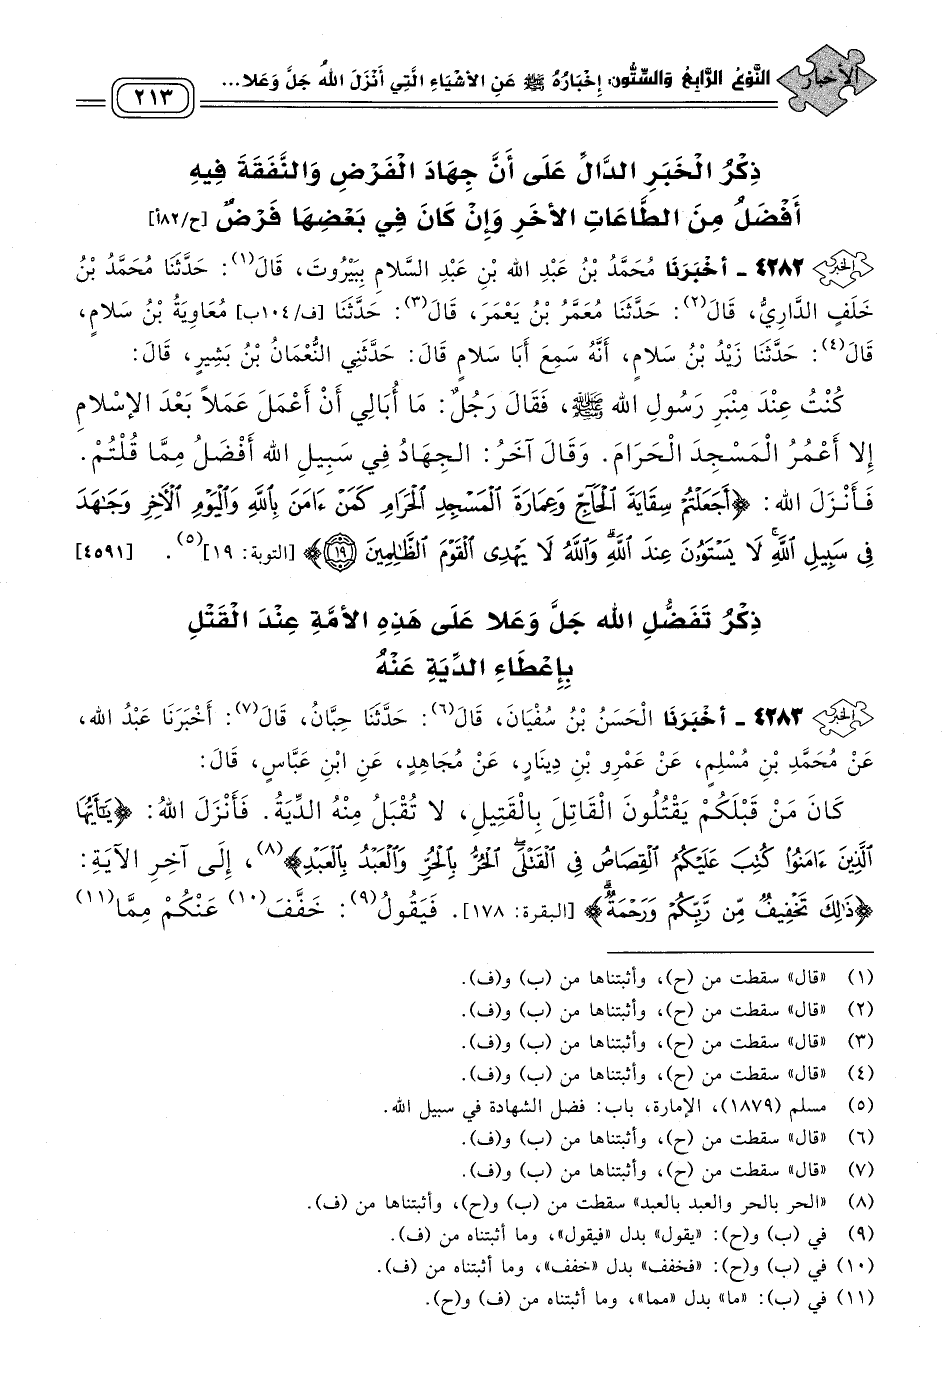 الأخبار
النَّوْعُ الرَّابِعُ وَالسِّتُّونَ: إِخْبَارُهُ ﷺ عَنِ الأَشْيَاءِ الَّتِي أَنْزَلَ اللهُ جَلَّ وَعَلا...
٢١٣
ذِكْرُ الْخَبَرِ الدَّالِّ عَلَى أَنَّ جِهَادَ الْفَرْضِ وَالنَّفَقَةَ فِيهِ
أَفْضَلُ مِنَ الطَّاعَاتِ الأُخَرِ وَإِنْ كَانَ فِي بَعْضِهَا فَرْضٌ [ح/٨٢أ]
الخبر ٤٢٨٢ - أَخْبَرَنَا مُحَمَّدُ بْنُ عَبْدِ اللهِ بْنِ عَبْدِ السَّلامِ بِبَيْرُوتَ، قَالَ(١): حَدَّثَنَا مُحَمَّدُ بْنُ
خَلَفٍ الدَّارِيُّ، قَالَ(٢): حَدَّثَنَا مُعَمَّرُ بْنُ يَعْمَرَ، قَالَ(٣): حَدَّثَنَا [ف/١٠٤ب] مُعَاوِيَةُ بْنُ سَلامٍ،
قَالَ(٤): حَدَّثَنَا زَيْدُ بْنُ سَلامٍ، أَنَّهُ سَمِعَ أَبَا سَلامٍ قَالَ: حَدَّثَنِي النُّعْمَانُ بْنُ بَشِيرٍ، قَالَ:
كُنْتُ عِنْدَ مِنْبَرِ رَسُولِ اللهِ ﷺ، فَقَالَ رَجُلٌ: مَا أُبَالِي أَنْ أَعْمَلَ عَمَلاً بَعْدَ الإِسْلامِ
إِلا أَعْمُرُ الْمَسْجِدَ الْحَرَامَ. وَقَالَ آخَرُ: الجِهَادُ فِي سَبِيلِ اللهِ أَفْضَلُ مِمَّا قُلْتُمْ.
فَأَنْزَلَ اللهُ: ﴿أَجَعَلْتُمْ سِقَايَةَ الْحَآجِّ وَعِمَارَةَ الْمَسْجِدِ الْحَرَامِ كَمَنْ ءَامَنَ بِاللَّهِ وَالْيَوْمِ الْآخِرِ وَجَٰهَدَ
فِي سَبِيلِ اللَّهِ ۚ لَا يَسْتَوُۥنَ عِندَ اللَّهِ ۗ وَاللَّهُ لَا يَهْدِى الْقَوْمَ الظَّٰلِمِينَ ١٩﴾ [التوبة: ١٩](٥). [٤٥٩١]
ذِكْرُ تَفَضُّلِ اللهِ جَلَّ وَعَلا عَلَى هَذِهِ الأُمَّةِ عِنْدَ الْقَتْلِ
بِإِعْطَاءِ الدِّيَةِ عَنْهُ
الخبر ٤٢٨٣ - أَخْبَرَنَا الْحَسَنُ بْنُ سُفْيَانَ، قَالَ(٦): حَدَّثَنَا حِبَّانُ، قَالَ(٧): أَخْبَرَنَا عَبْدُ اللهِ،
عَنْ مُحَمَّدِ بْنِ مُسْلِمٍ، عَنْ عَمْرِو بْنِ دِينَارٍ، عَنْ مُجَاهِدٍ، عَنِ ابْنِ عَبَّاسٍ، قَالَ:
كَانَ مَنْ قَبْلَكُمْ يَقْتُلُونَ الْقَاتِلَ بِالْقَتِيلِ، لا تُقْبَلُ مِنْهُ الدِّيَةُ. فَأَنْزَلَ اللهُ: ﴿يَٰٓأَيُّهَا
الَّذِينَ ءَامَنُوا كُتِبَ عَلَيْكُمُ الْقِصَاصُ فِي الْقَتْلَى ۖ الْحُرُّ بِالْحُرِّ وَالْعَبْدُ بِالْعَبْدِ﴾(٨)، إِلَى آخِرِ الآيَةِ:
﴿ذَٰلِكَ تَخْفِيفٌ مِّن رَّبِّكُمْ وَرَحْمَةٌ ۗ﴾ [البقرة: ١٧٨]. فَيَقُولُ(٩): خَفَّفَ(١٠) عَنْكُمْ مِمَّا(١١)
(١) «قال» سقطت من (ح)، وأثبتناها من (ب) و(ف).
(٢) «قال» سقطت من (ح)، وأثبتناها من (ب) و(ف).
(٣) «قال» سقطت من (ح)، وأثبتناها من (ب) و(ف).
(٤) «قال» سقطت من (ح)، وأثبتناها من (ب) و(ف).
(٥) مسلم (١٨٧٩)، الإمارة، باب: فضل الشهادة في سبيل الله.
(٦) «قال» سقطت من (ح)، وأثبتناها من (ب) و(ف).
(٧) «قال» سقطت من (ح)، وأثبتناها من (ب) و(ف).
(٨) «الحر بالحر والعبد بالعبد» سقطت من (ب) و(ح)، وأثبتناها من (ف).
(٩) في (ب) و(ح): «يقول» بدل «فيقول»، وما أثبتناه من (ف).
(١٠) في (ب) و(ح): «فخفف» بدل «خفف»، وما أثبتناه من (ف).
(١١) في (ب): «ما» بدل «مما»، وما أثبتناه من (ف) و(ح).